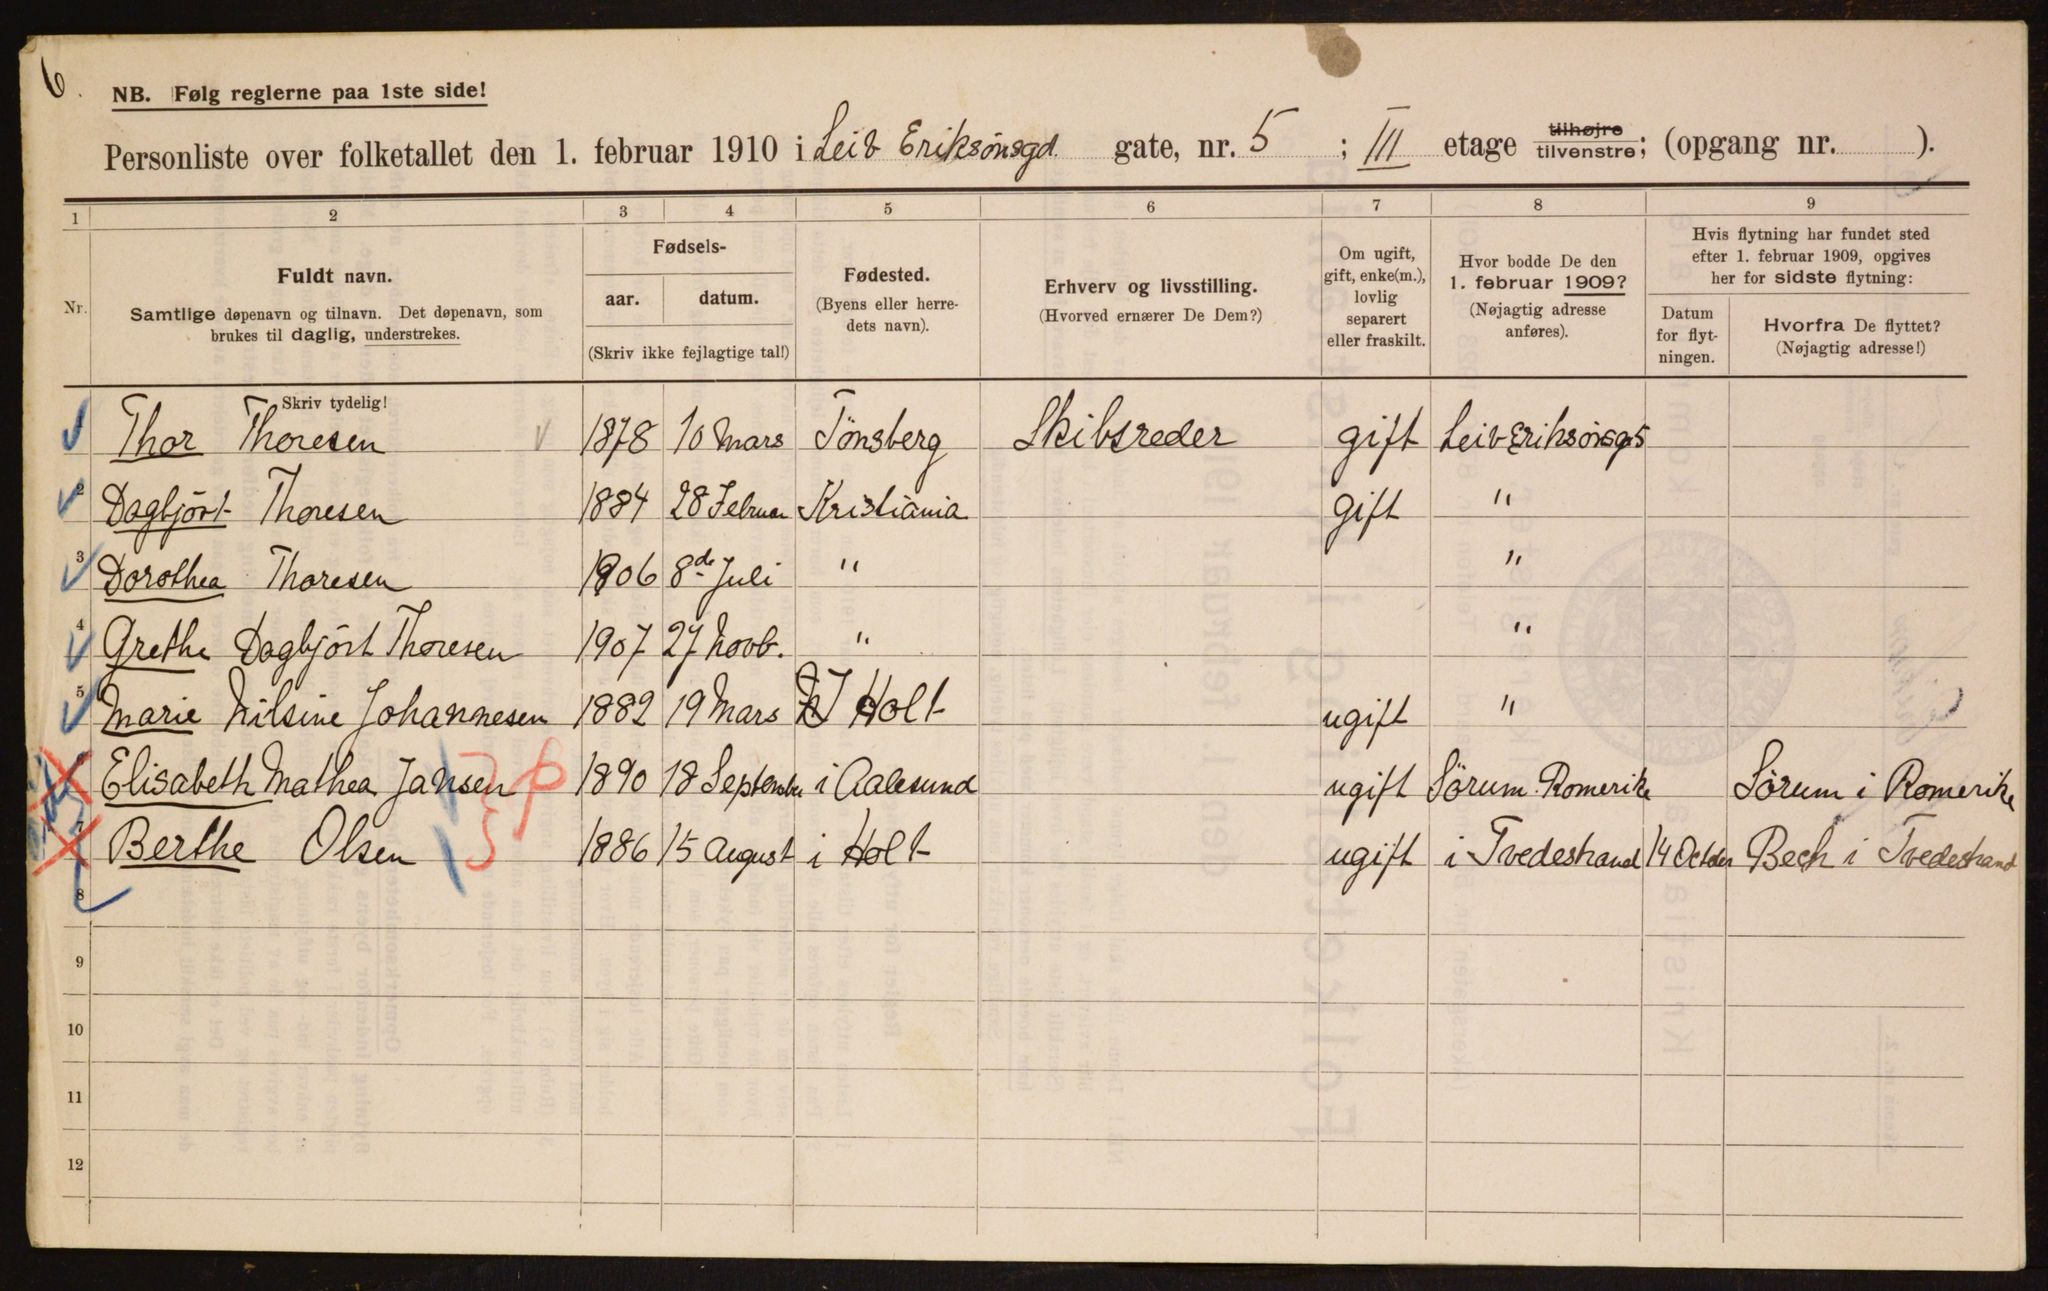 6.
NB. Følg reglerne paa 1ste side!
Personliste over folketallet den 1. februar 1910 i Leiv Eriksønsgd. gate, nr. 5 ; III etage tilhøjre tilvenstre; (opgang nr. ).
1 2 3 4 5 6 7 8 9
Nr.
Fuldt navn.
Samtlige døpenavn og tilnavn. Det døpenavn, som
brukes til daglig, understrekes.
Fødsels-
aar. datum.
(Skriv ikke fejlagtige tal!)
Fødested.
(Byens eller herre-
dets navn).
Erhverv og livsstilling.
(Hvorved ernærer De Dem?)
Om ugift,
gift, enke(m.),
lovlig
separert
eller fraskilt.
Hvor bodde De den
1. februar 1909?
(Nøjagtig adresse
anføres).
Hvis flytning har fundet sted
efter 1. februar 1909, opgives
her for sidste flytning:
Datum
for flyt-
ningen.
Hvorfra De flyttet?
(Nøjagtig adresse!)
Skriv tydelig!
Thor Thoresen 1878 10 Mars Tönsberg Skibsreder gift Leiv Eriksønsg 5
2 Dagbjört Thoresen 1884 28 Februar Kristiania gift "
3 Dorothea Thoresen 1906 8de Juli " "
4 Grethe Dagbjört Thoresen 1907 27 Novb. " "
5 Marie Nilsine Johannesen 1882 19 Mars I Holt ugift "
Elisabeth Mathea Jansen 1890 18 September i Aalesund ugift Sörum Romerike Sörum i Romerike
7 Berthe Olsen 1886 15 August i Holt ugift i Tvedestrand 14 October Bech i Tvedestrand
8
9
10
11
12